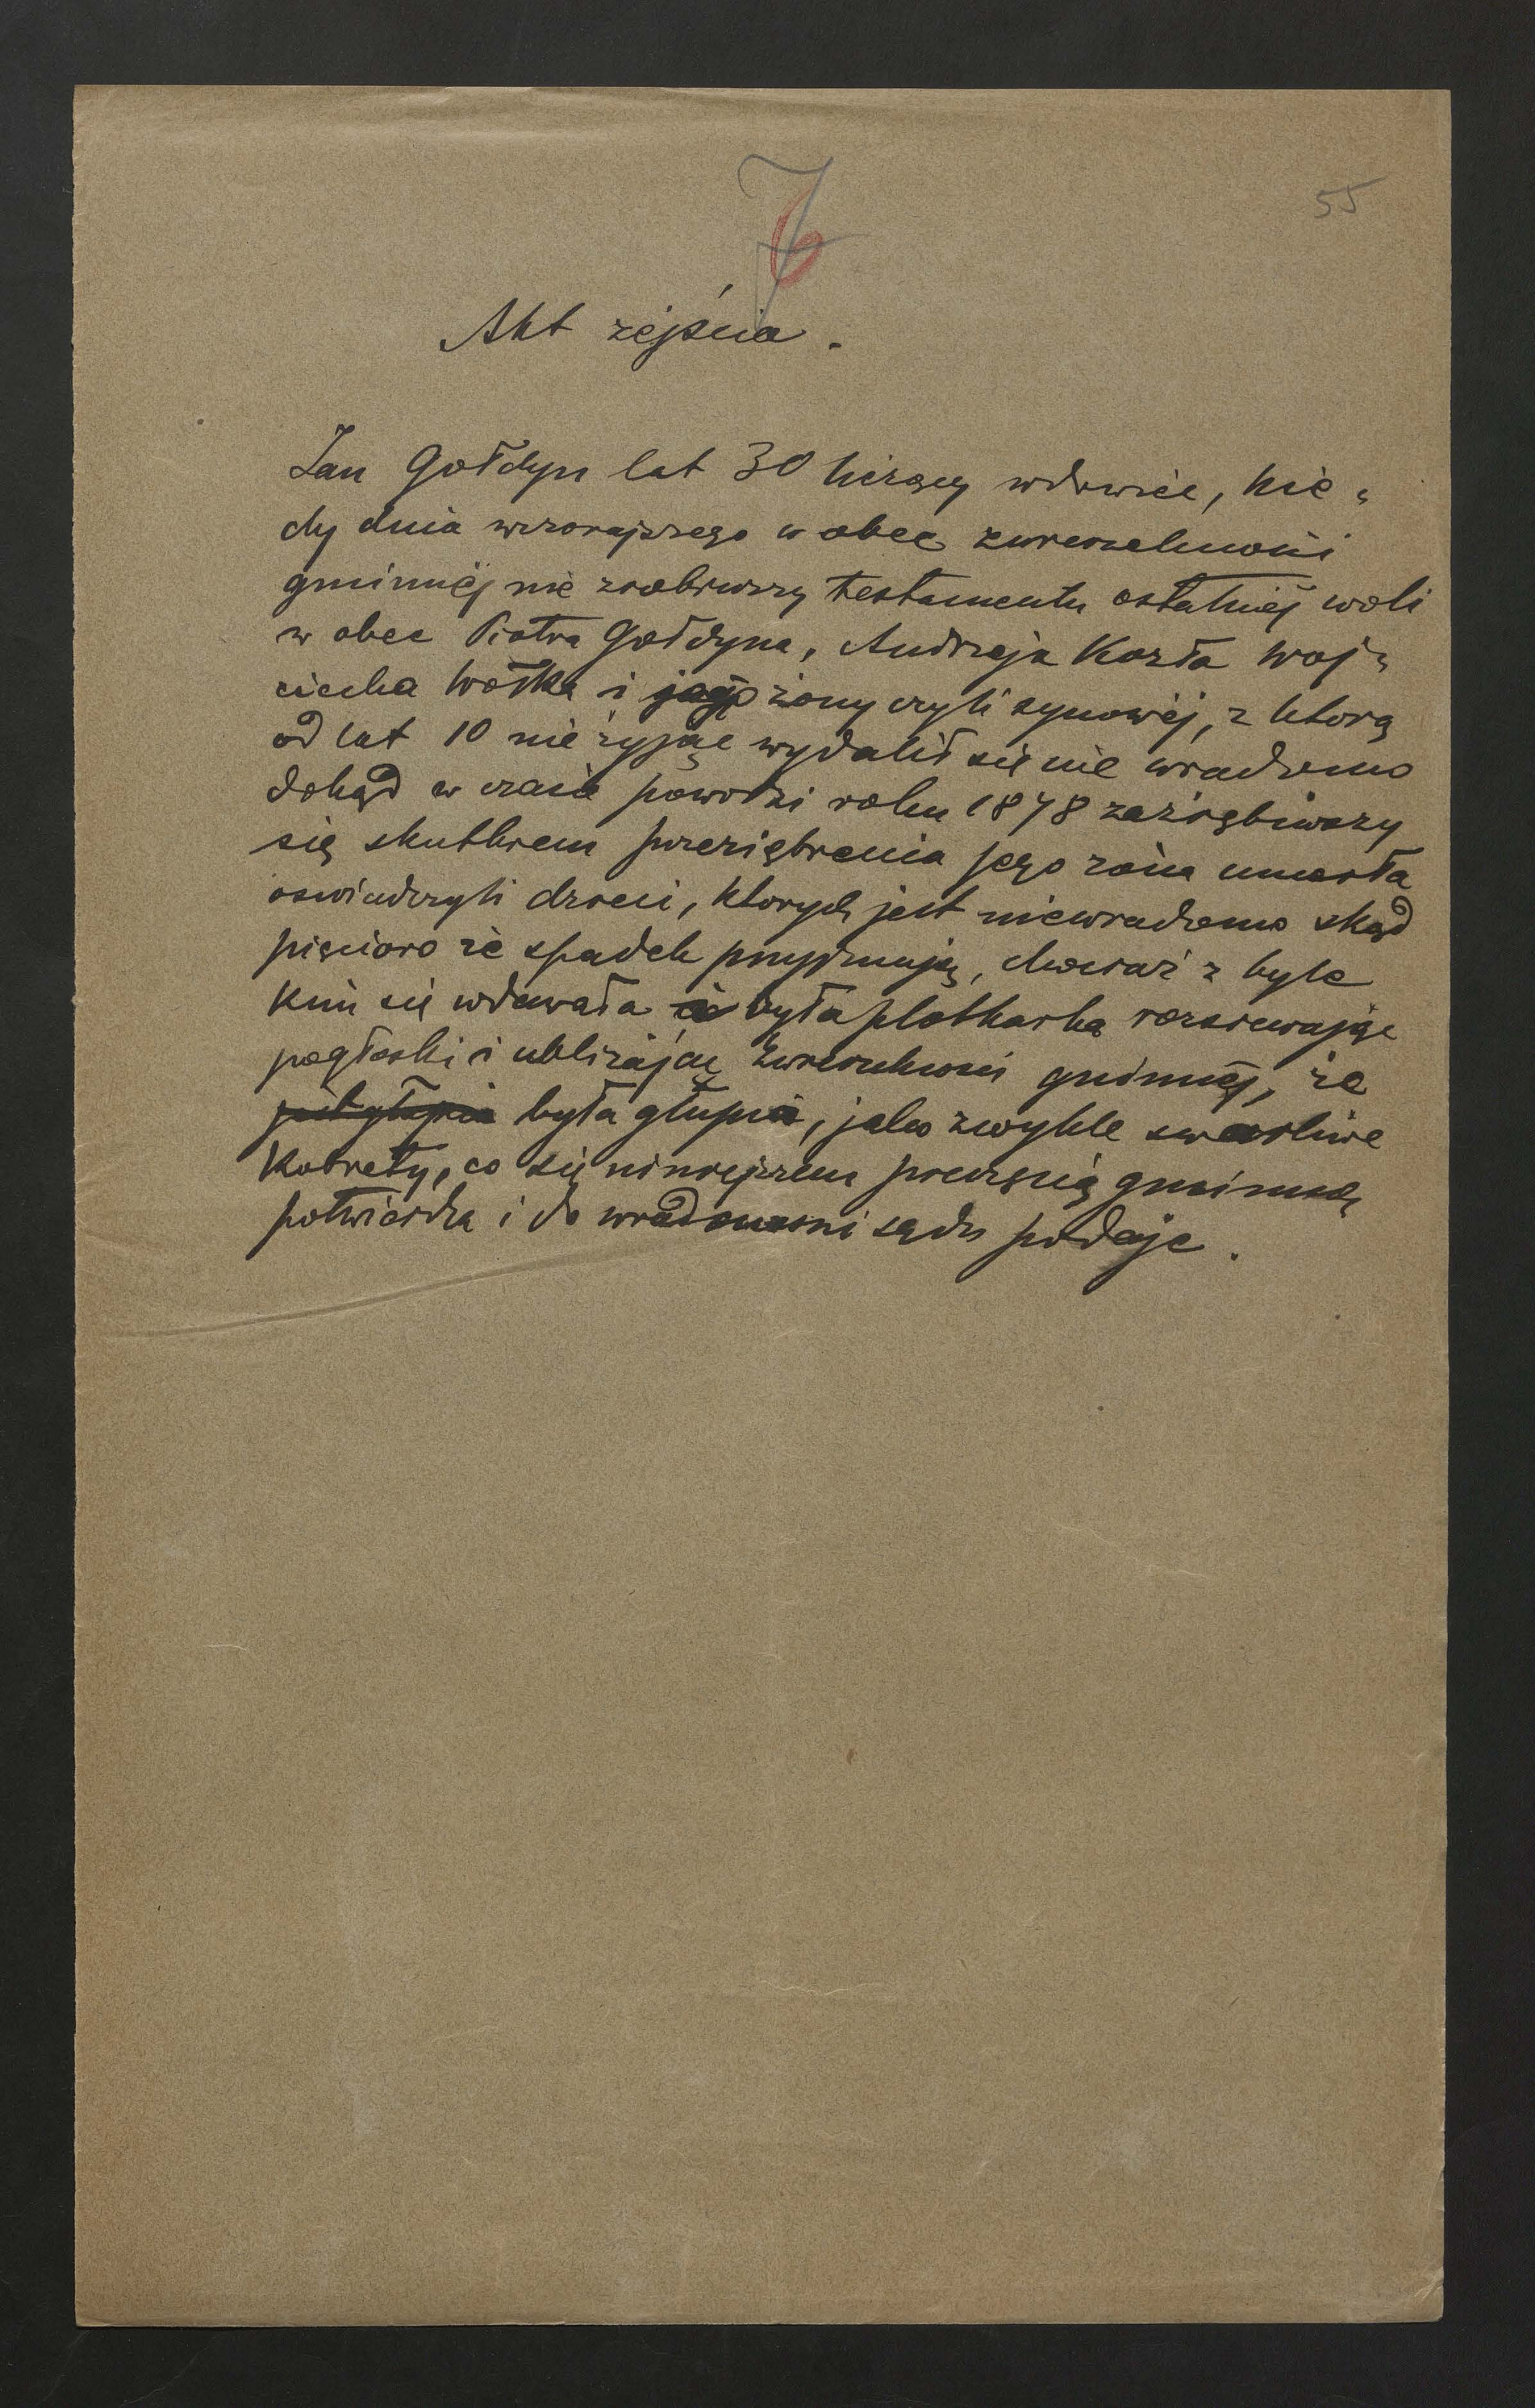 7
6
55
Akt zejścia.
Jan Gołdyn lat 30 liczący wdowiec, kie„
dy dnia wczorajszego w obec zwierzchności
gminnéj nie zrobiwszy testamentu ostatniéj woli
w obec Piotra Gołdyna, Andrzeja Kozła Woj„
ciecha Wołka i jego żony czyli synowéj, z ktorą
od lat 10 nie żyjąc wydalił się nie wiadomo
dokąd w czasie powodzi roku 1878 zaziębiwszy
się skutkiem przeziębienia jego żona umarła
oswiadczyli dzieci, ktorych jest niewiadomo skąd
pięcioro że spadek przyjmują, chociaż z byle
kim się wdawała i była plotkarką rozsiewając
pogłoski i ubliżając zwierzchności gminnéj, że
była głupia, jako zwykle swarliwe
kobiety, co się niniejszem pieczęcią gminną
potwierdza i do wiadomosci sądu podaje.